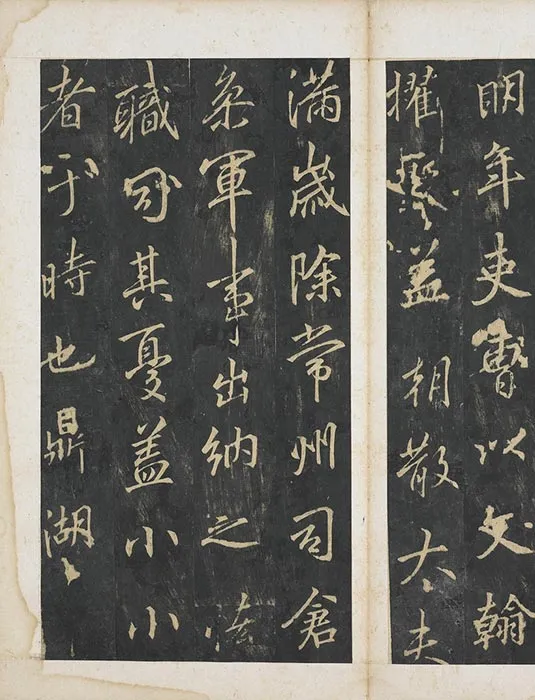 明年吏曹以文翰
擢盖朝散大夫
滿歲除常州司倉
叅軍事出納之
職司其憂盖小小
者于時也鼎湖